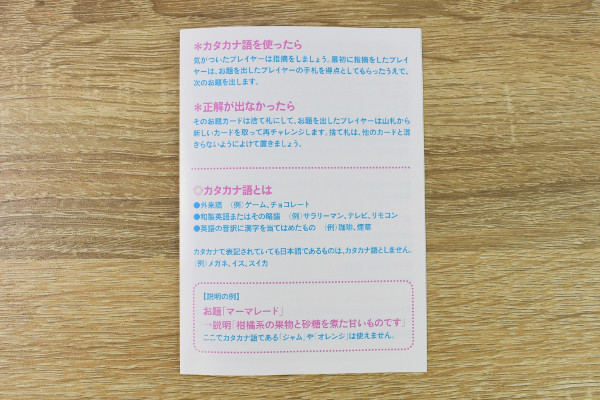 ＊カタカナ語を使ったら
気がついたプレイヤーは指摘をしましょう。最初に指摘をしたプレイ
ヤーは、お題を出したプレイヤーの手札を得点としてもらったうえで、
次のお題を出します。
＊正解が出なかったら
そのお題カードは捨て札にして、お題を出したプレイヤーは山札から
新しいカードを取って再チャレンジします。捨て札は、他のカードと混
ざらないようによけて置きましょう。
◎カタカナ語とは
●外来語 （例）ゲーム、チョコレート
●和製英語またはその略語 （例）サラリーマン、テレビ、リモコン
●英語の音訳に漢字を当てはめたもの （例）珈琲、煙草
カタカナで表記されていても日本語であるものは、カタカナ語としません。
（例）メガネ、イス、スイカ
【説明の例】
お題「マーマレード」
→説明「柑橘系の果物と砂糖を煮た甘いものです」
ここでカタカナ語である「ジャム」や「オレンジ」は使えません。